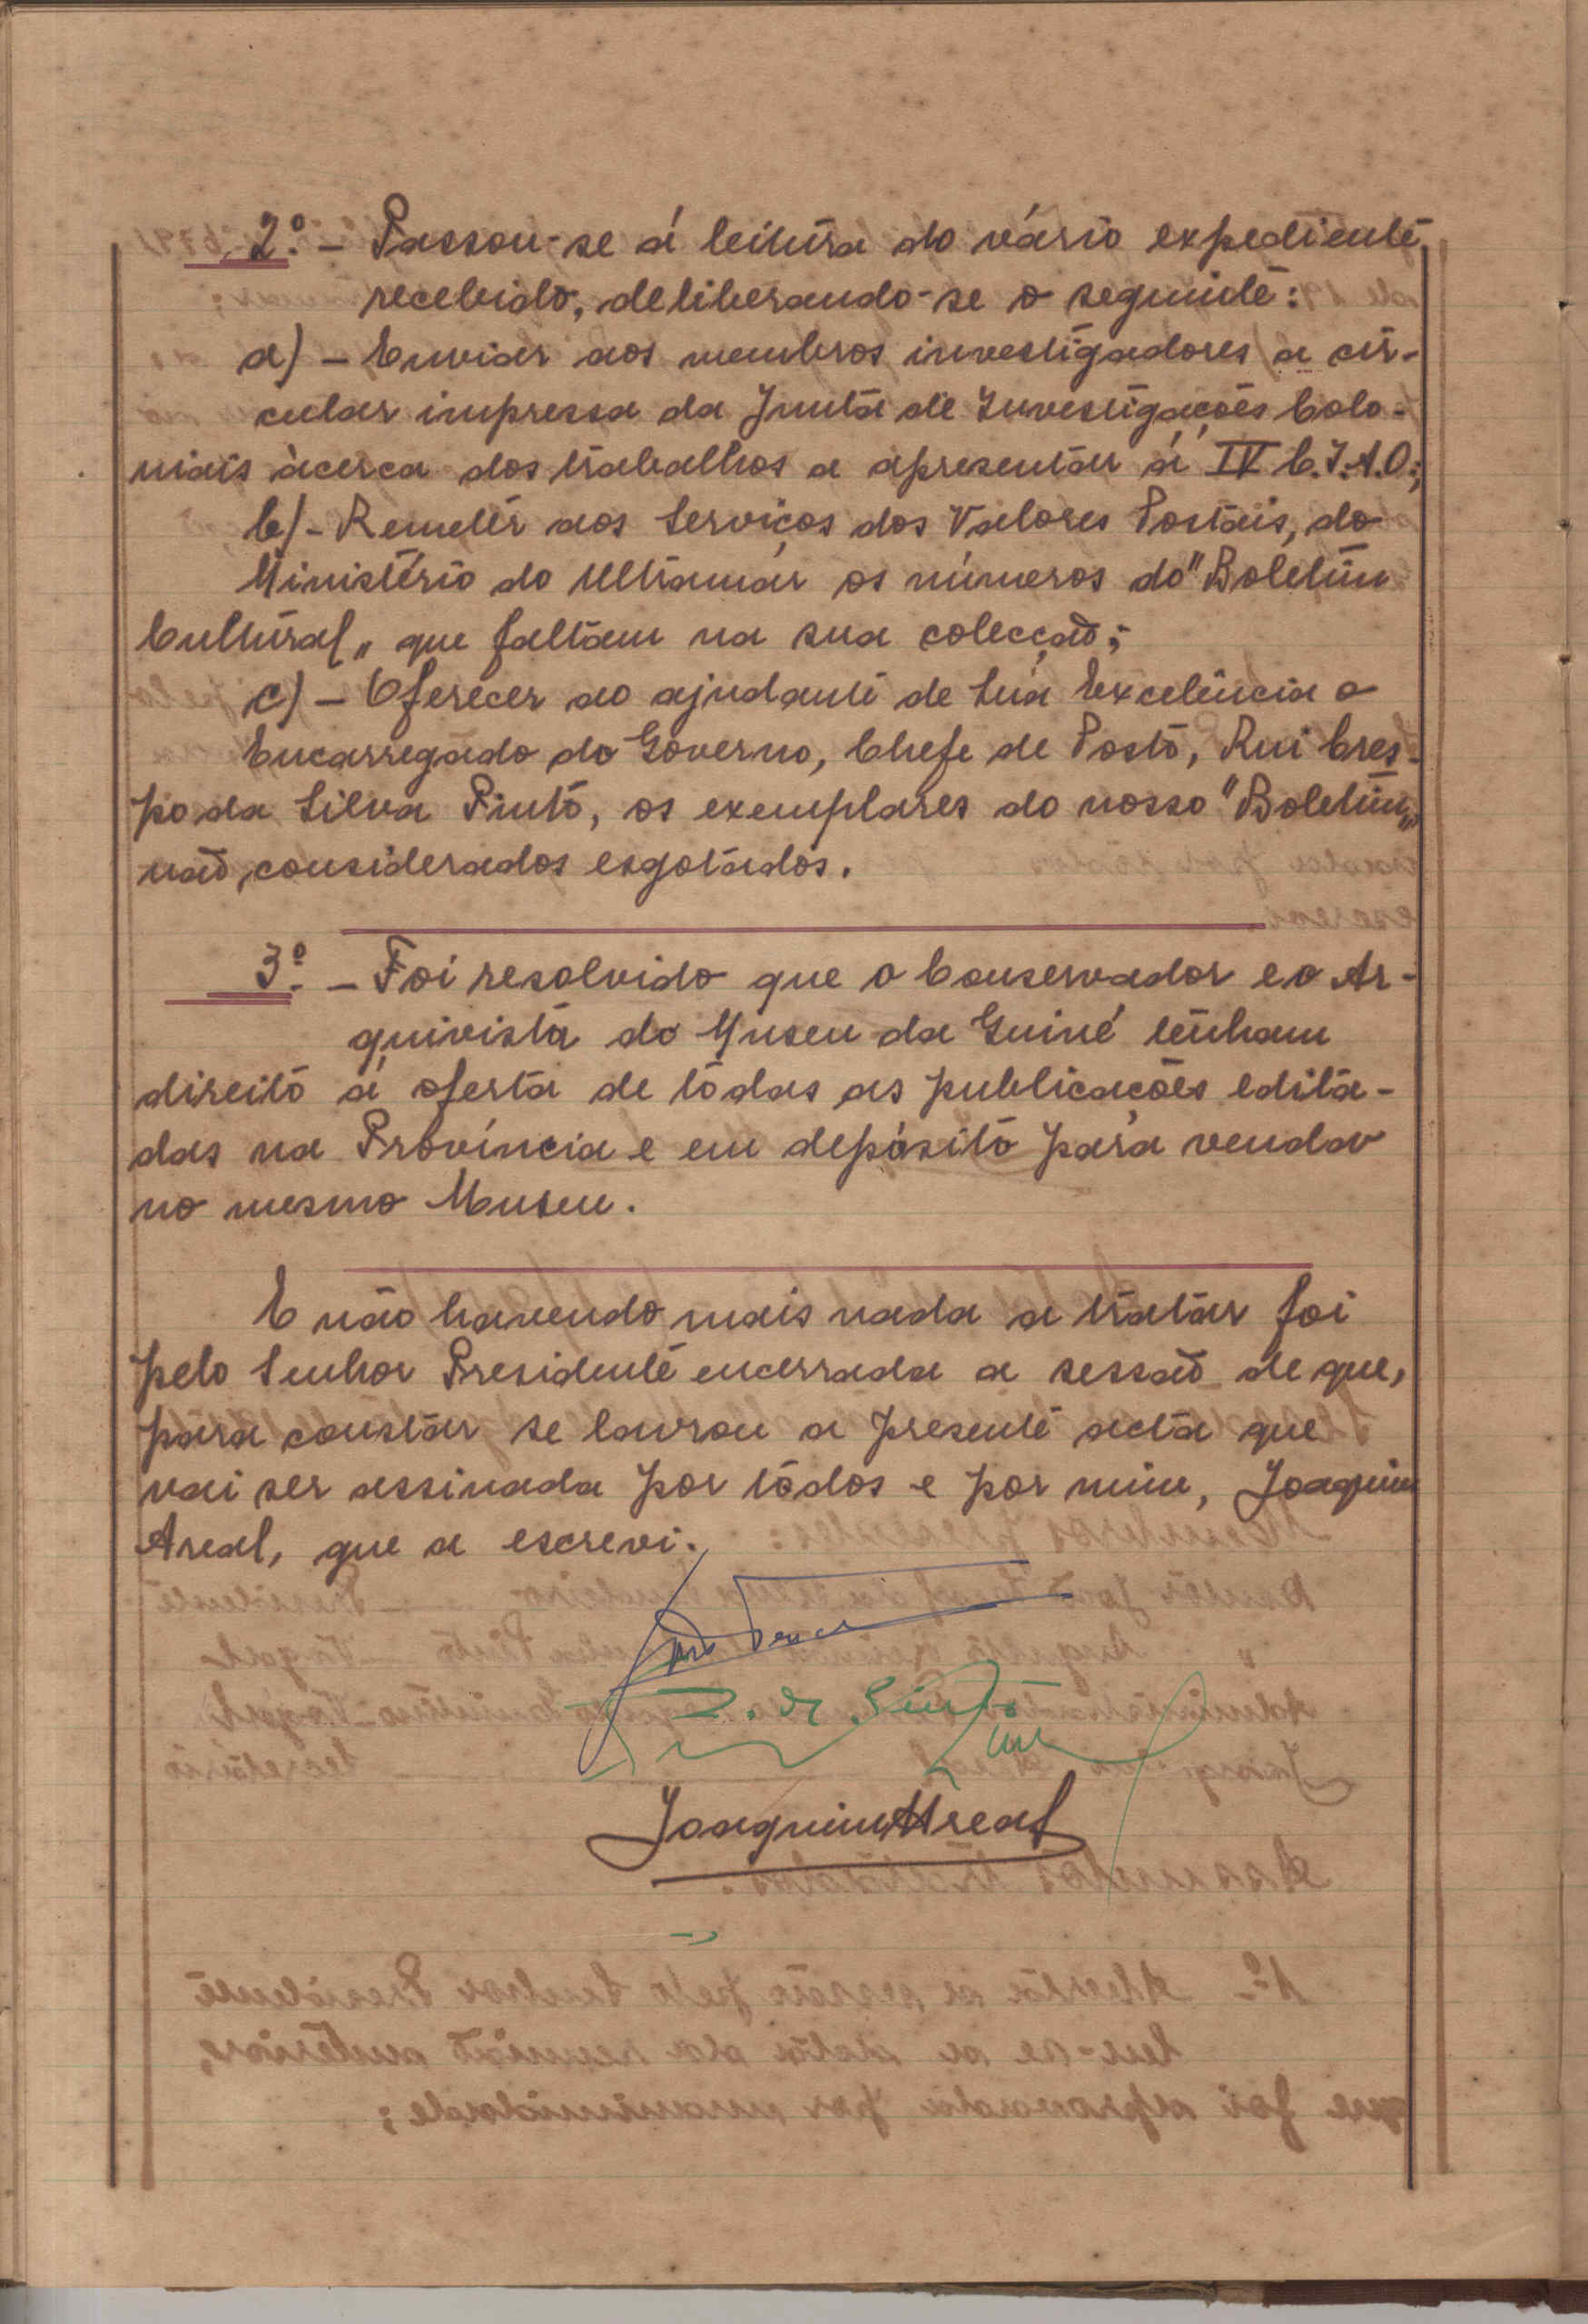 2º. - Passou-se á leitura do vário expediente
recebido, deliberando-se o seguinte:
a) - Enviar aos membros investigadores a cir-
cular impressa da Junta de Investigações Colo-
niais àcerca dos trabalhos a apresentar á IV C.I.A.O.;
b) - Remeter aos Serviços dos Valores Postais, do
Ministério do Ultramar os números do "Boletim
Cultural" que faltam na sua colecção;
c) - Oferecer ao ajudante de Sua Excelência o
Encarregado do Governo, Chefe de Posto, Rui Cres-
po da Silva Pinto, os exemplares do nosso "Boletim"
não considerados esgotados.
3º. - Foi resolvido que o Conservador e o Ar-
quivista do Museu da Guiné tenham
direito á oferta de tôdas as publicações edita-
das na Província e em depósito para venda
no mesmo Museu.
E não havendo mais nada a tratar foi
pelo Senhor Presidente encerrada a sessão de que,
para constar se lavrou a presente acta que
vai ser assinada por tôdos e por mim, Joaquim
Areal, que a escrevi.
Joaquim Areal